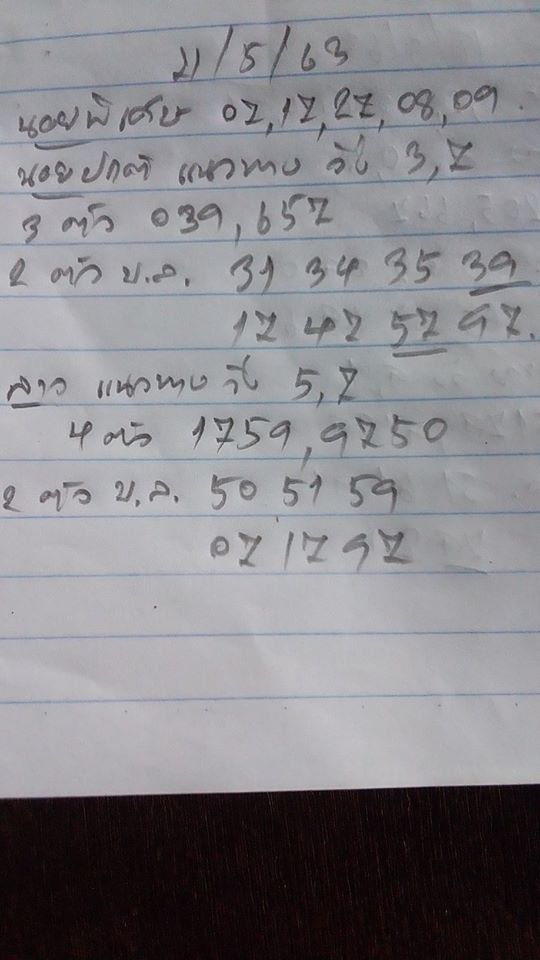 21/5/63
นอยพิเศษ 07,17,27,08,09.
นอยปกติ แนวทาง วิ่ง 3,7
3 ตัว 039,657
2 ตัว บ.ล. 31 34 35 39
17 47 57 97.
ลาว แนวทาง วิ่ง 5,7
4 ตัว 1759,9750
2 ตัว บ.ล. 50 51 59
07 17 97